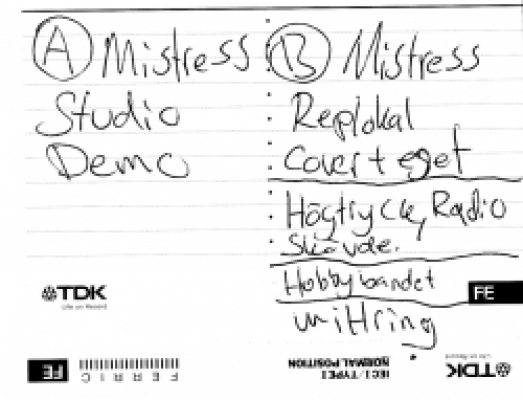 A Mistress
Studio
Demo
TDK
Life on Record
FE
FERRIC
B Mistress
Replokal
Cover + eget
Högtryck, Radio
Skövde.
Hobbybandet
FE
IEC I / TYPE I
NORMAL POSITION
TDK
Life on Record